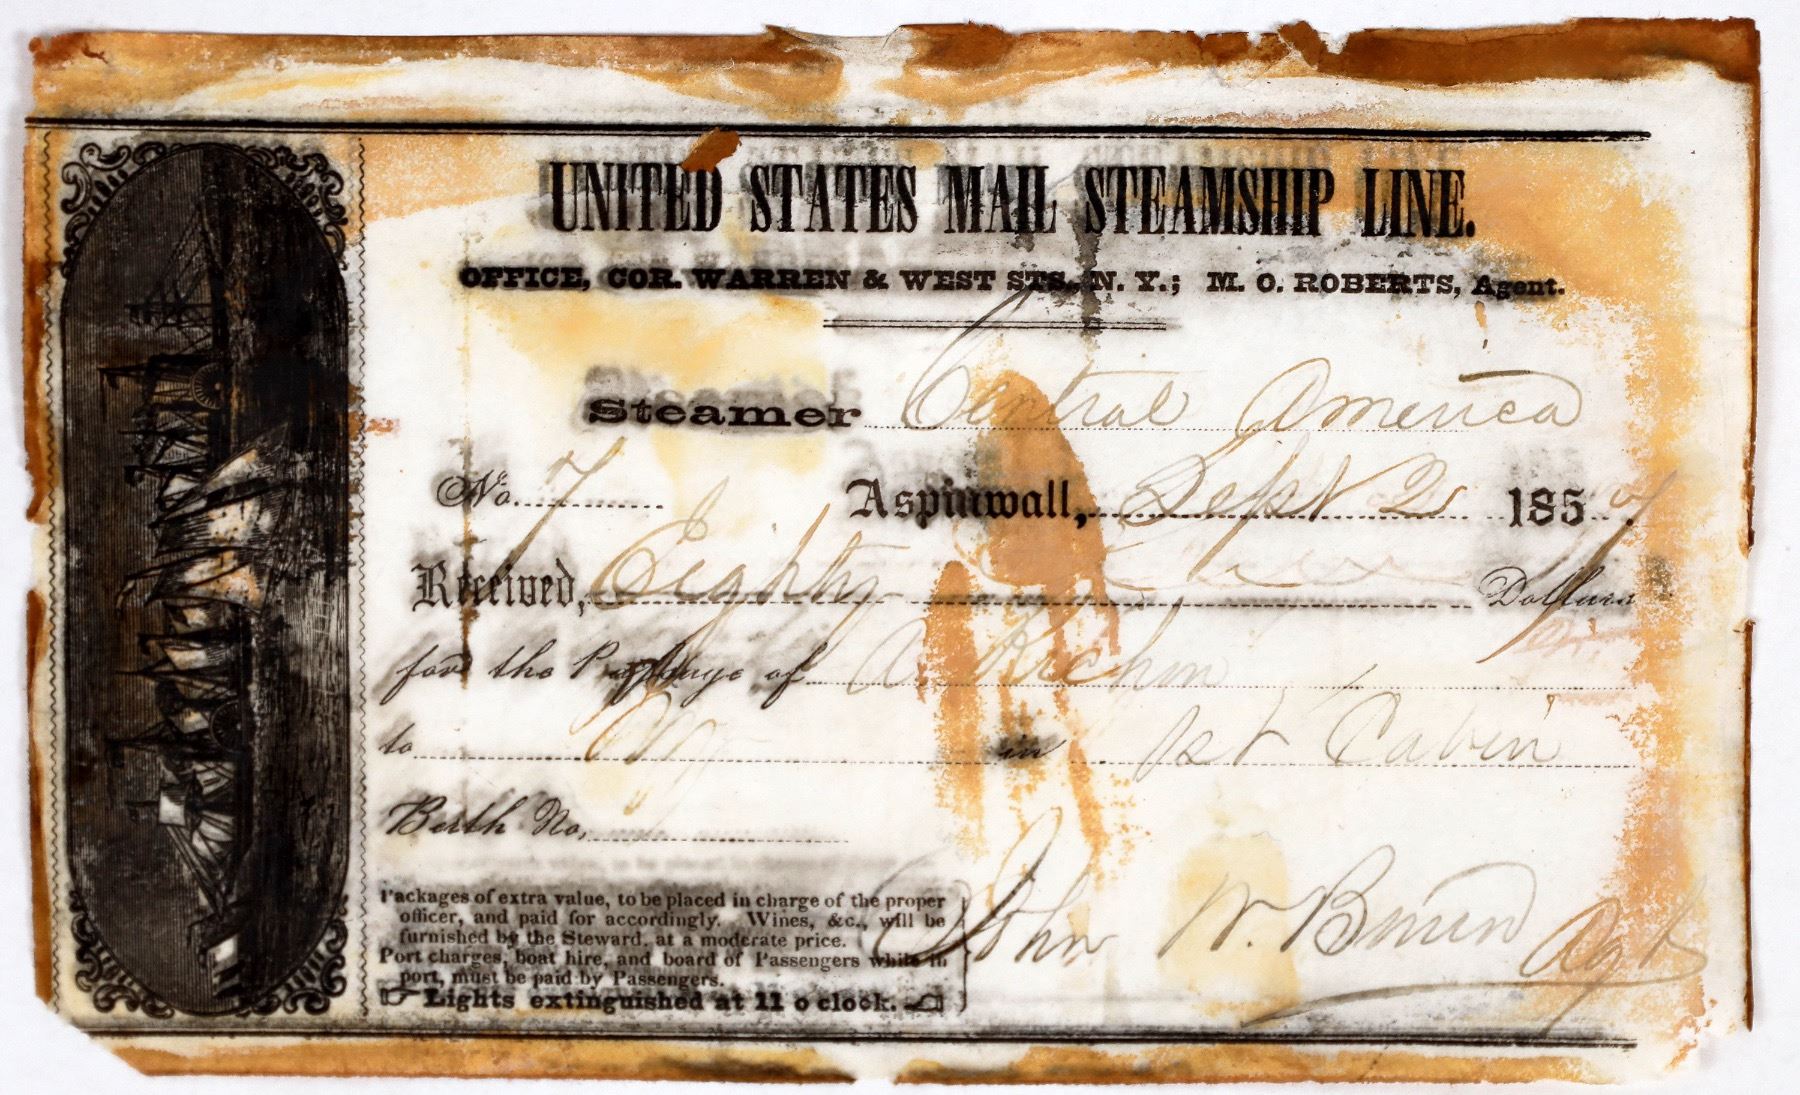 UNITED STATES MAIL STEAMSHIP LINE.
OFFICE, COR. WARREN & WEST STS., N. Y.; M. O. ROBERTS, Agent.
Steamer Central America
No. 7 Aspinwall, Sept 2 1857
Received, Eighty Dollars
for the Passage of A.
to NY in 1st Cabin
Berth No,
John W. Agt
Packages of extra value, to be placed in charge of the proper
officer, and paid for accordingly. Wines, &c., will be
furnished by the Steward, at a moderate price.
Port charges, boat hire, and board of Passengers while in
port, must be paid by Passengers.
☞ Lights extinguished at 11 o clock. ☜